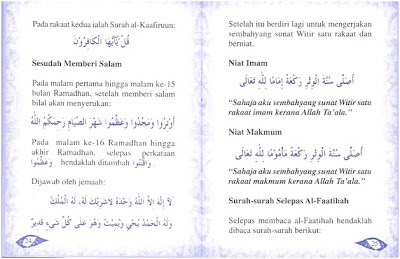 Pada rakaat kedua ialah Surah al-Kaafiruun:
قُلْ يٰٓأَيُّهَا الْكَافِرُوْنَ
Sesudah Memberi Salam
Pada malam pertama hingga malam ke-15
bulan Ramadhan, setelah memberi salam
bilal akan menyerukan:
أَوْتِرُوْا وَمَجِّدُوْا وَعَظِّمُوْا شَهْرَ الصِّيَامِ رَحِمَكُمُ اللهُ
Pada malam ke-16 Ramadhan hingga
akhir Ramadhan, selepas perkataan
وَعَظِّمُوْا hendaklah ditambah وَاقْنُتُوْا.
Dijawab oleh jemaah:
لَا إِلٰهَ إِلَّا اللهُ وَحْدَهُ لَا شَرِيْكَ لَهُ، لَهُ الْمُلْكُ
وَلَهُ الْحَمْدُ يُحْيِي وَيُمِيْتُ وَهُوَ عَلٰى كُلِّ شَيْءٍ قَدِيْرٌ
24
Setelah itu berdiri lagi untuk mengerjakan
sembahyang sunat Witir satu rakaat dan
berniat.
Niat Imam
أُصَلِّى سُنَّةَ الْوِتْرِ رَكْعَةً إِمَامًا لِلّٰهِ تَعَالَى
“Sahaja aku sembahyang sunat Witir satu
rakaat imam kerana Allah Ta'ala.”
Niat Makmum
أُصَلِّى سُنَّةَ الْوِتْرِ رَكْعَةً مَأْمُوْمًا لِلّٰهِ تَعَالَى
“Sahaja aku sembahyang sunat Witir satu
rakaat makmum kerana Allah Ta'ala.”
Surah-surah Selepas Al-Faatihah
Selepas membaca al-Faatihah hendaklah
dibaca surah-surah berikut:
25